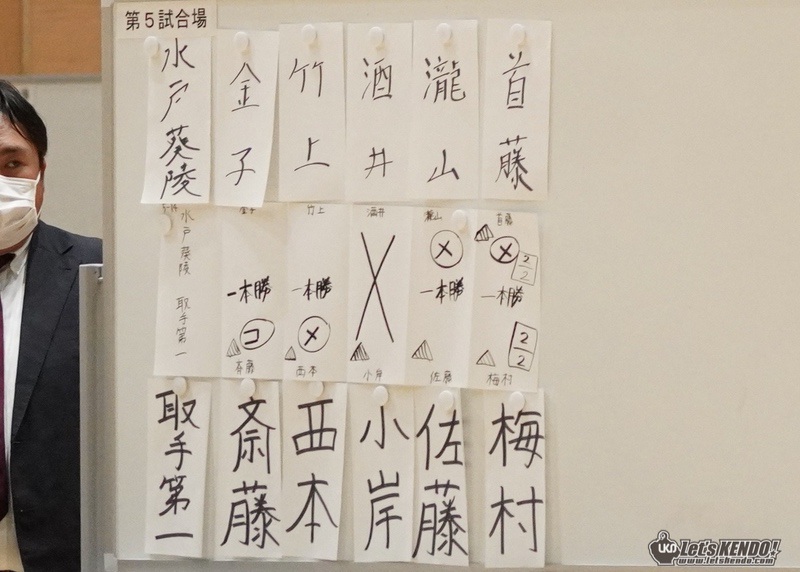 第5試合場
水戸葵陵
金子
竹上
酒井
瀧山
首藤
水戸葵陵
取手第一
金子
一本勝
コ
斉藤
竹上
一本勝
メ
西本
酒井
小岸
瀧山
メ
一本勝
佐藤
首藤
メ
2/2
一本勝
2/2
梅村
取手第一
斎藤
西本
小岸
佐藤
梅村
UKD Let's KENDO!
www.letskendo.com